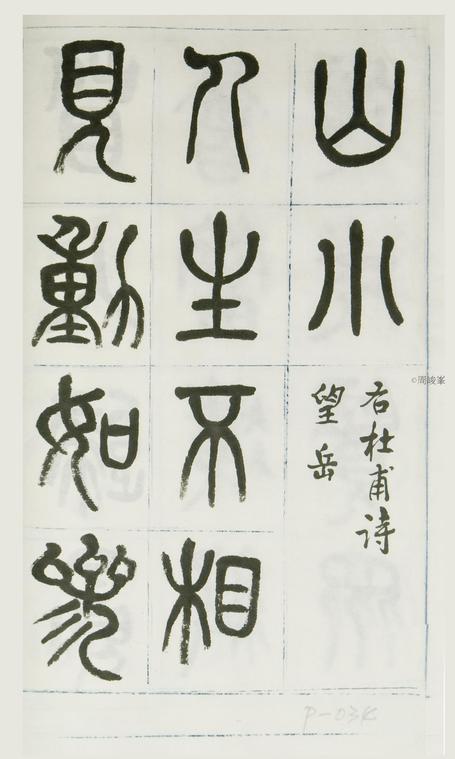 山小
右杜甫诗
望岳
人生不相
見動如參
©周峻峯